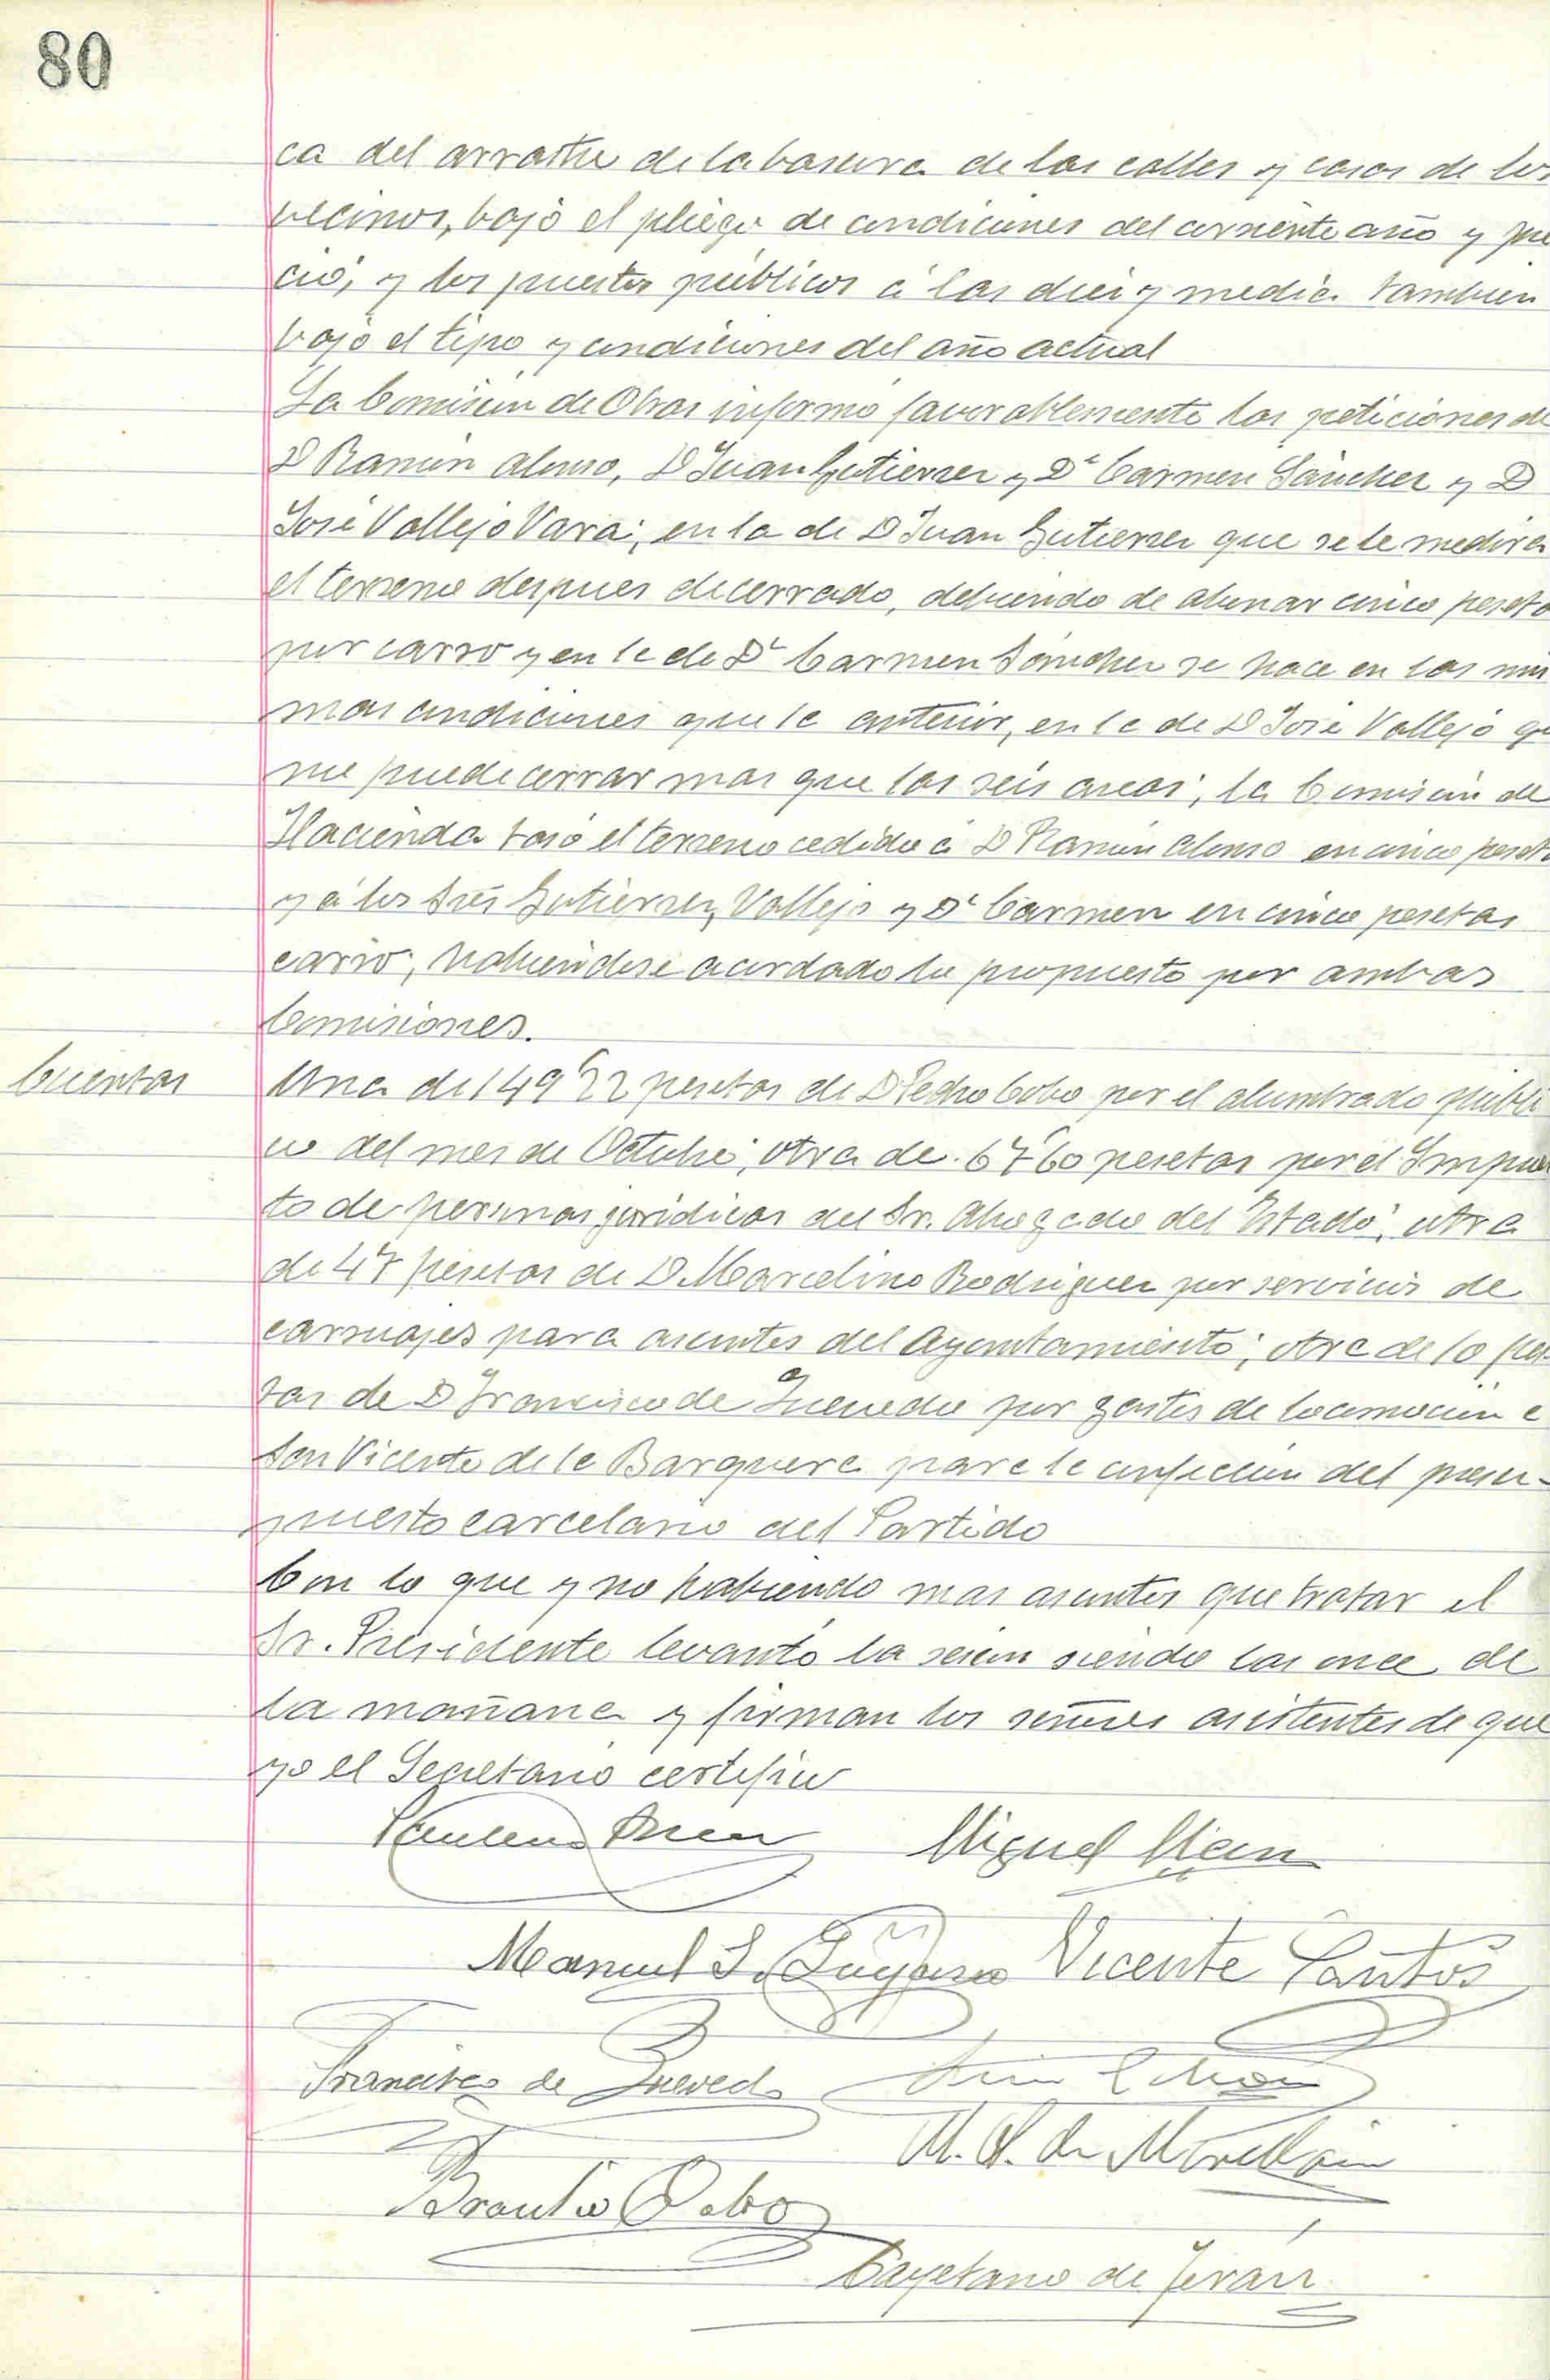 80
ca del arrastre de la basura de las calles y casas de los
vecinos, bajo el pliego de condiciones del corriente año y pre
cio, y los puestos públicos á las diez y media tambien
bajo el tipo y condiciones del año actual
La Comisión de Obras informó favorablemente las peticiones de
D Ramón Alonso, D Juan Gutierrez y Dª Carmen Sánchez y D
José Vallejo Vara; en la de D Juan Gutierrez que se le medira
el terreno despues de cerrado, debiendo de abonar cinco peseta
por carro y en la de Dª Carmen Sánchez se hace en las mis
mas condiciones que la anterior, en la de D José Vallejo qu
no puede cerrar mas que las seis areas; la Comisión de
Hacienda tasó el terreno cedido á D Ramón Alonso en cinco peset
y á los Sres Gutierrez, Vallejo y Dª Carmen en cinco pesetas
carro; habiendose acordado lo propuesto por ambas
Comisiones.
Cuentas
Una de 149'22 pesetas de D Pedro Cobo por el alumbrado públi
co del mes de Octubre; otra de 67'60 pesetas por el Impues
to de personas jurídicas del Sr. Abogado del Estado; otra
de 47 pesetas de D. Marcelino Rodriguez por servicios de
carruajes para asuntos del Ayuntamiento; otra de 10 pes
tas de D Francisco de Quevedo por gastos de locomoción a
San Vicente de la Barquera para la confección del presu-
puesto carcelario del Partido
Con lo que y no habiendo mas asuntos que tratar el
Sr. Presidente levantó la sesión siendo las once de
la mañana y firman los señores asistentes de que
yo el Secretario certifico
Miguel
Manuel S. Vicente Santos
Francisco de Quevedo
M. S. de Movellán
Braulio Cobo
Cayetano de Terán